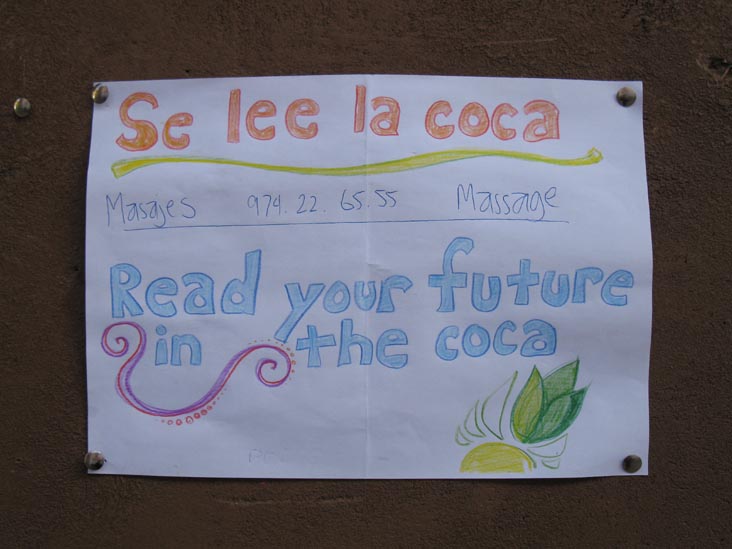 Se lee la coca
Masajes 974.22.65.55 Massage
Read your future
in the coca